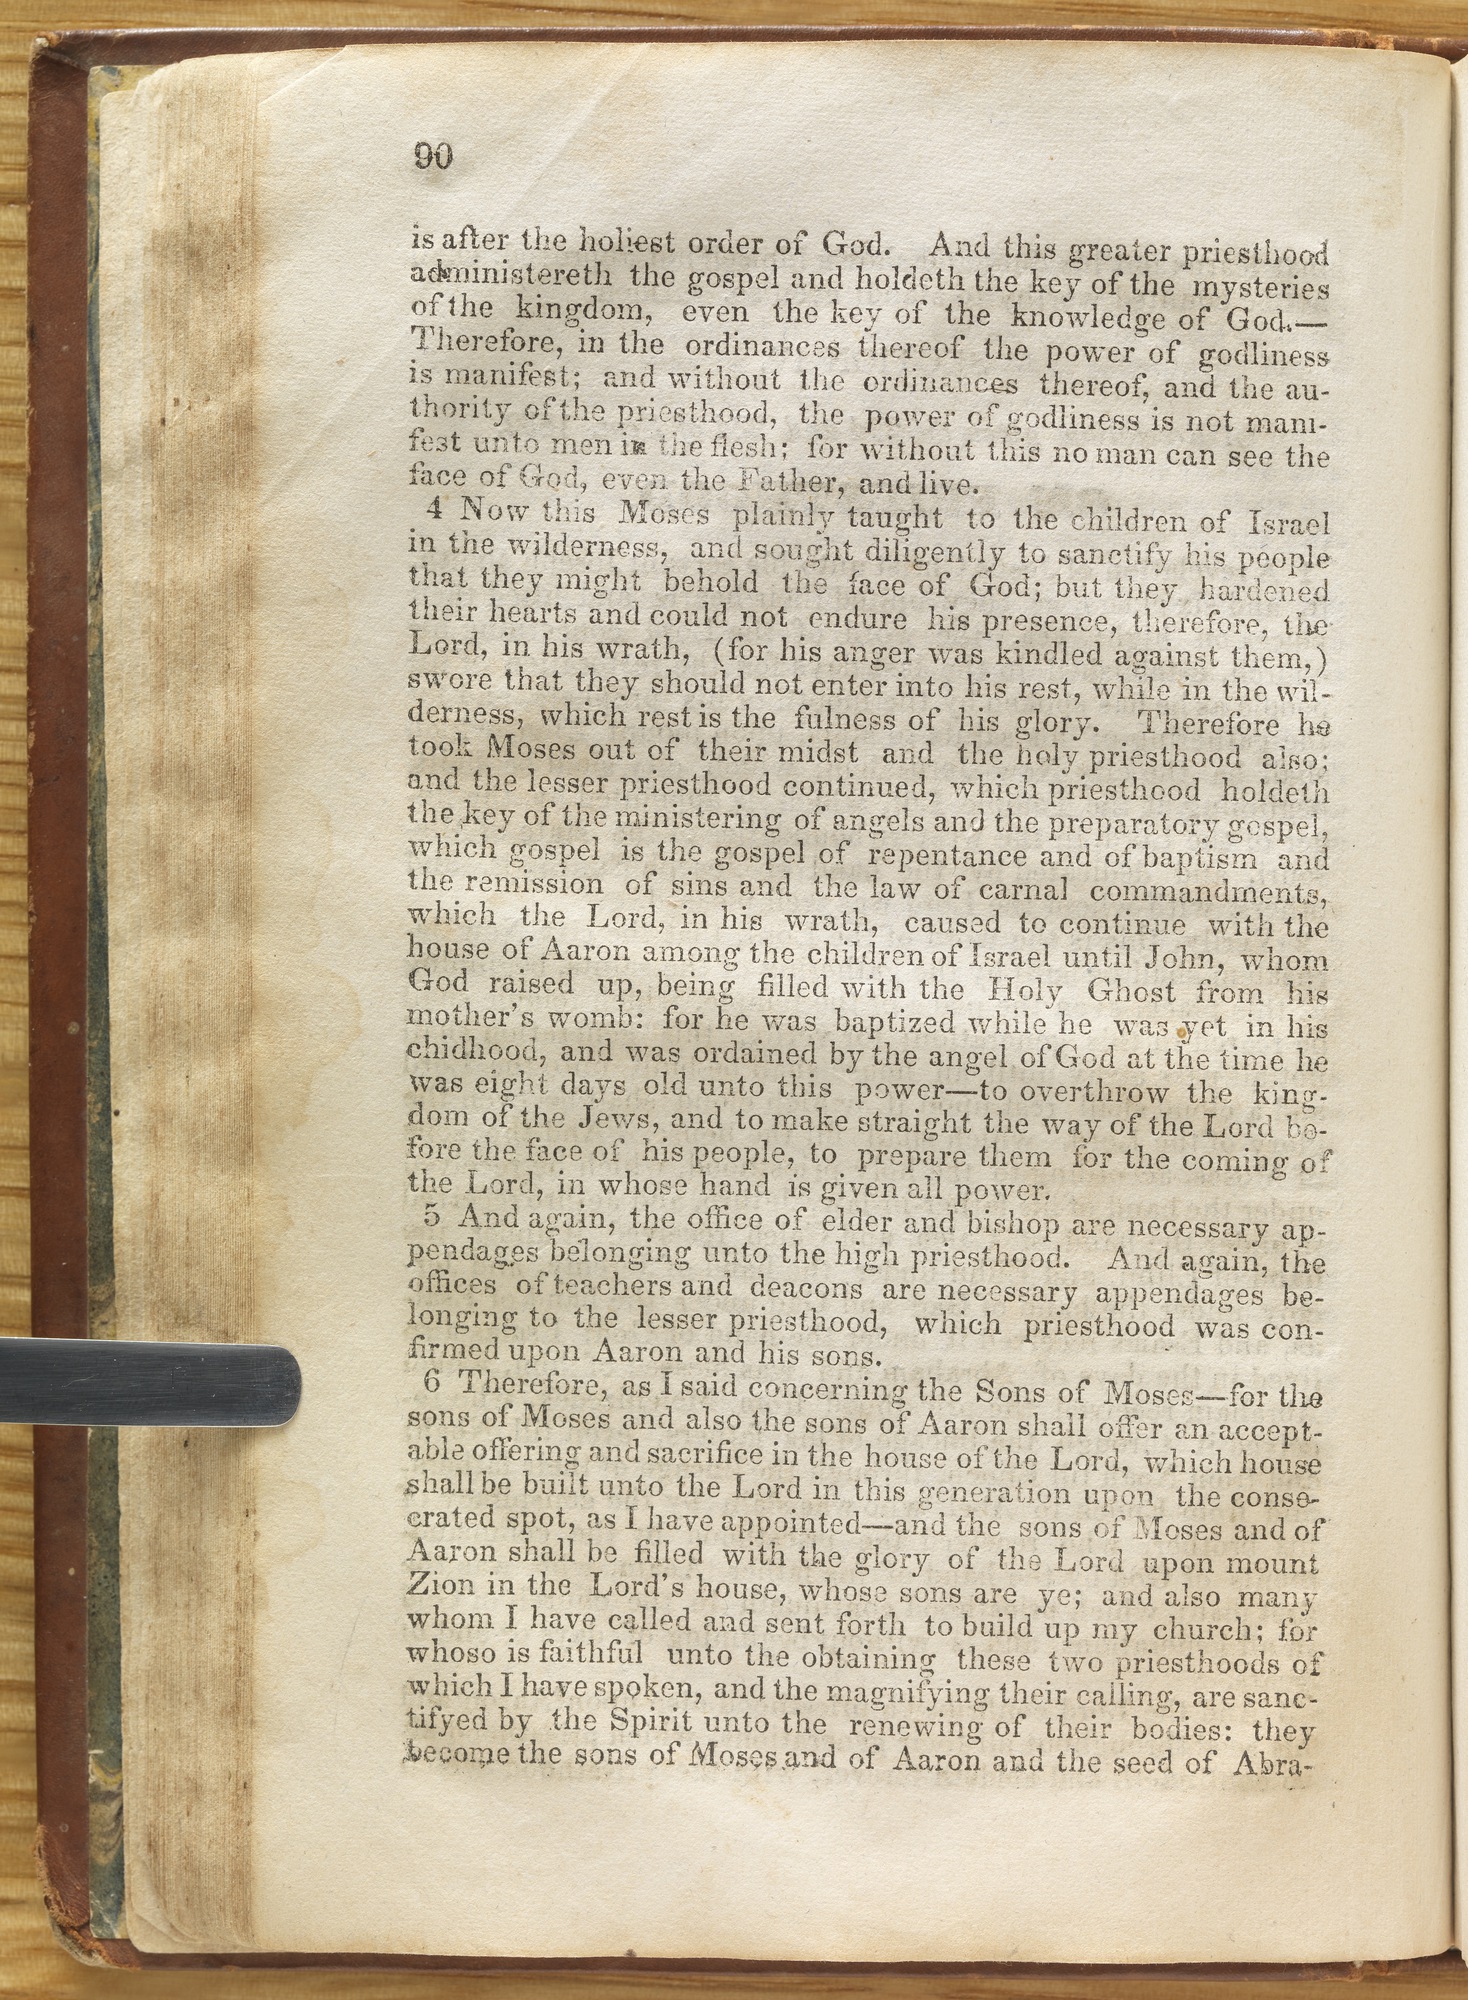 90
is after the holiest order of God. And this greater priesthood
administereth the gospel and holdeth the key of the mysteries
of the kingdom, even the key of the knowledge of God.—
Therefore, in the ordinances thereof the power of godliness
is manifest; and without the ordinances thereof, and the au-
thority of the priesthood, the power of godliness is not mani-
fest unto men in the flesh; for without this no man can see the
face of God, even the Father, and live.
4 Now this Moses plainly taught to the children of Israel
in the wilderness, and sought diligently to sanctify his people
that they might behold the face of God; but they hardened
their hearts and could not endure his presence, therefore, the
Lord, in his wrath, (for his anger was kindled against them,)
swore that they should not enter into his rest, while in the wil-
derness, which rest is the fulness of his glory. Therefore he
took Moses out of their midst and the holy priesthood also;
and the lesser priesthood continued, which priesthood holdeth
the key of the ministering of angels and the preparatory gospel,
which gospel is the gospel of repentance and of baptism and
the remission of sins and the law of carnal commandments,
which the Lord, in his wrath, caused to continue with the
house of Aaron among the children of Israel until John, whom
God raised up, being filled with the Holy Ghost from his
mother's womb: for he was baptized while he was yet in his
chidhood, and was ordained by the angel of God at the time he
was eight days old unto this power—to overthrow the king-
dom of the Jews, and to make straight the way of the Lord be-
fore the face of his people, to prepare them for the coming of
the Lord, in whose hand is given all power.
5 And again, the office of elder and bishop are necessary ap-
pendages belonging unto the high priesthood. And again, the
offices of teachers and deacons are necessary appendages be-
longing to the lesser priesthood, which priesthood was con-
firmed upon Aaron and his sons.
6 Therefore, as I said concerning the Sons of Moses—for the
sons of Moses and also the sons of Aaron shall offer an accept-
able offering and sacrifice in the house of the Lord, which house
shall be built unto the Lord in this generation upon the conse-
crated spot, as I have appointed—and the sons of Moses and of
Aaron shall be filled with the glory of the Lord upon mount
Zion in the Lord's house, whose sons are ye; and also many
whom I have called and sent forth to build up my church; for
whoso is faithful unto the obtaining these two priesthoods of
which I have spoken, and the magnifying their calling, are sanc-
tifyed by the Spirit unto the renewing of their bodies: they
become the sons of Moses and of Aaron and the seed of Abra-